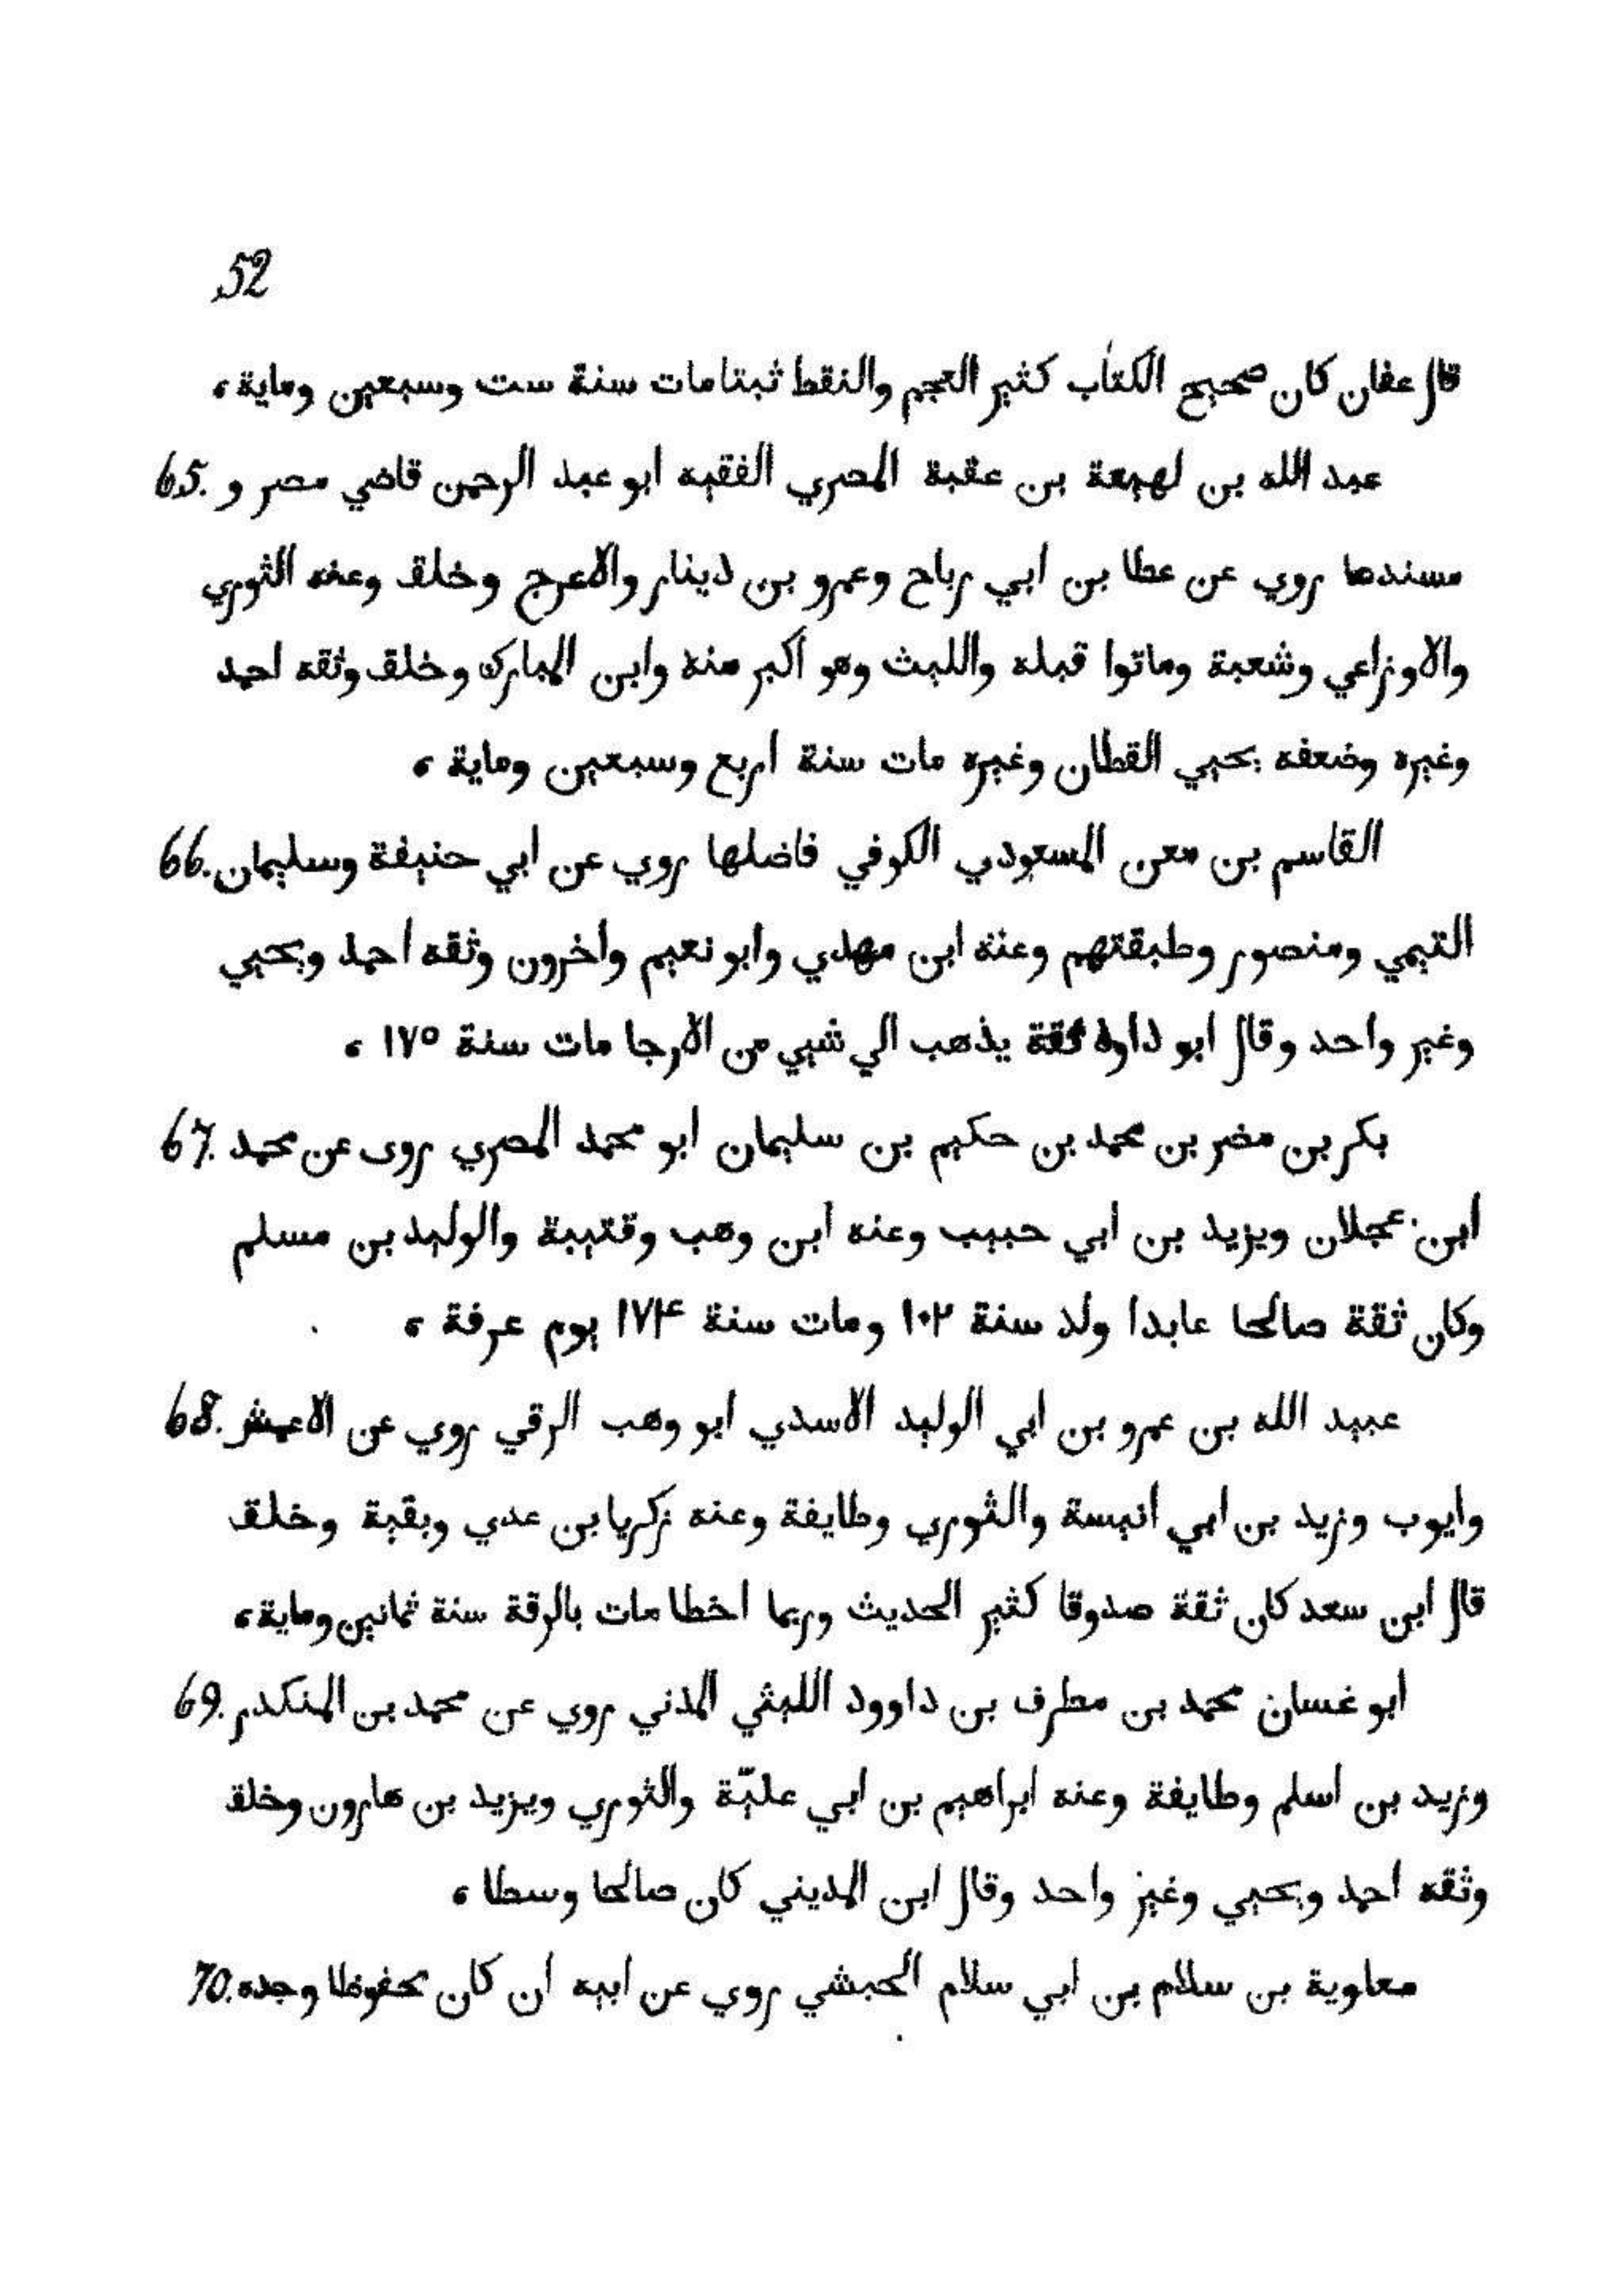 52
قال عفان كان صحيح الكتاب كثير العجم والنقط ثبتا مات سنة ست وسبعين وماية ،
65. عبد الله بن لهيعة بن عقبة المصري الفقيه ابو عبد الرحمن قاضي مصر و
مسندها روي عن عطا بن ابي رباح وعمرو بن دينار والاعرج وخلق وعنه الثوري
والاوزاعي وشعبة وماتوا قبله والليث وهو اكبر منه وابن المبارك وخلق وثقه احمد
وغيره وضعفه يحيي القطان وغيره مات سنة اربع وسبعين وماية ،
66. القاسم بن معن المسعودي الكوفي فاضلها روي عن ابي حنيفة وسليمان
التيمي ومنصور وطبقتهم وعنه ابن مهدي وابو نعيم واخرون وثقه احمد ويحيي
وغير واحد وقال ابو داود ثقة يذهب الي شيي من الارجا مات سنة ١٧٥ ،
67. بكر بن مضر بن محمد بن حكيم بن سليمان ابو محمد المصري روى عن محمد
ابن عجلان ويزيد بن ابي حبيب وعنه ابن وهب وقتيبة والوليد بن مسلم
وكان ثقة صالحا عابدا ولد سنة ١٠٢ ومات سنة ١٧۴ يوم عرفة ،
68. عبيد الله بن عمرو بن ابي الوليد الاسدي ابو وهب الرقي روي عن الاعمش
وايوب وزيد بن ابي انيسة والثوري وطايفة وعنه زكريا بن عدي وبقية وخلق
قال ابن سعد كان ثقة صدوقا كثير الحديث وربما اخطا مات بالرقة سنة ثمانين وماية ،
69. ابو غسان محمد بن مطرف بن داوود الليثي المدني روي عن محمد بن المنكدر
وزيد بن اسلم وطايفة وعنه ابراهيم بن ابي عليّة والثوري ويزيد بن هارون وخلق
وثقه احمد ويحيي وغيز واحد وقال ابن المديني كان صالحا وسطا ،
70. معاوية بن سلام بن ابي سلام الحبشي روي عن ابيه ان كان محفوظا وجده